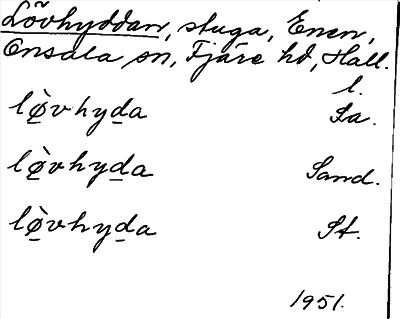 Lövhyddan, stuga, Enen,
Onsala sn, Fjäre hd, Hall.
l.
lø̱̀vhyḏa Sa.
lø̱̀vhyḏa Sand.
lø̱̀vhyḏa St.
1951.